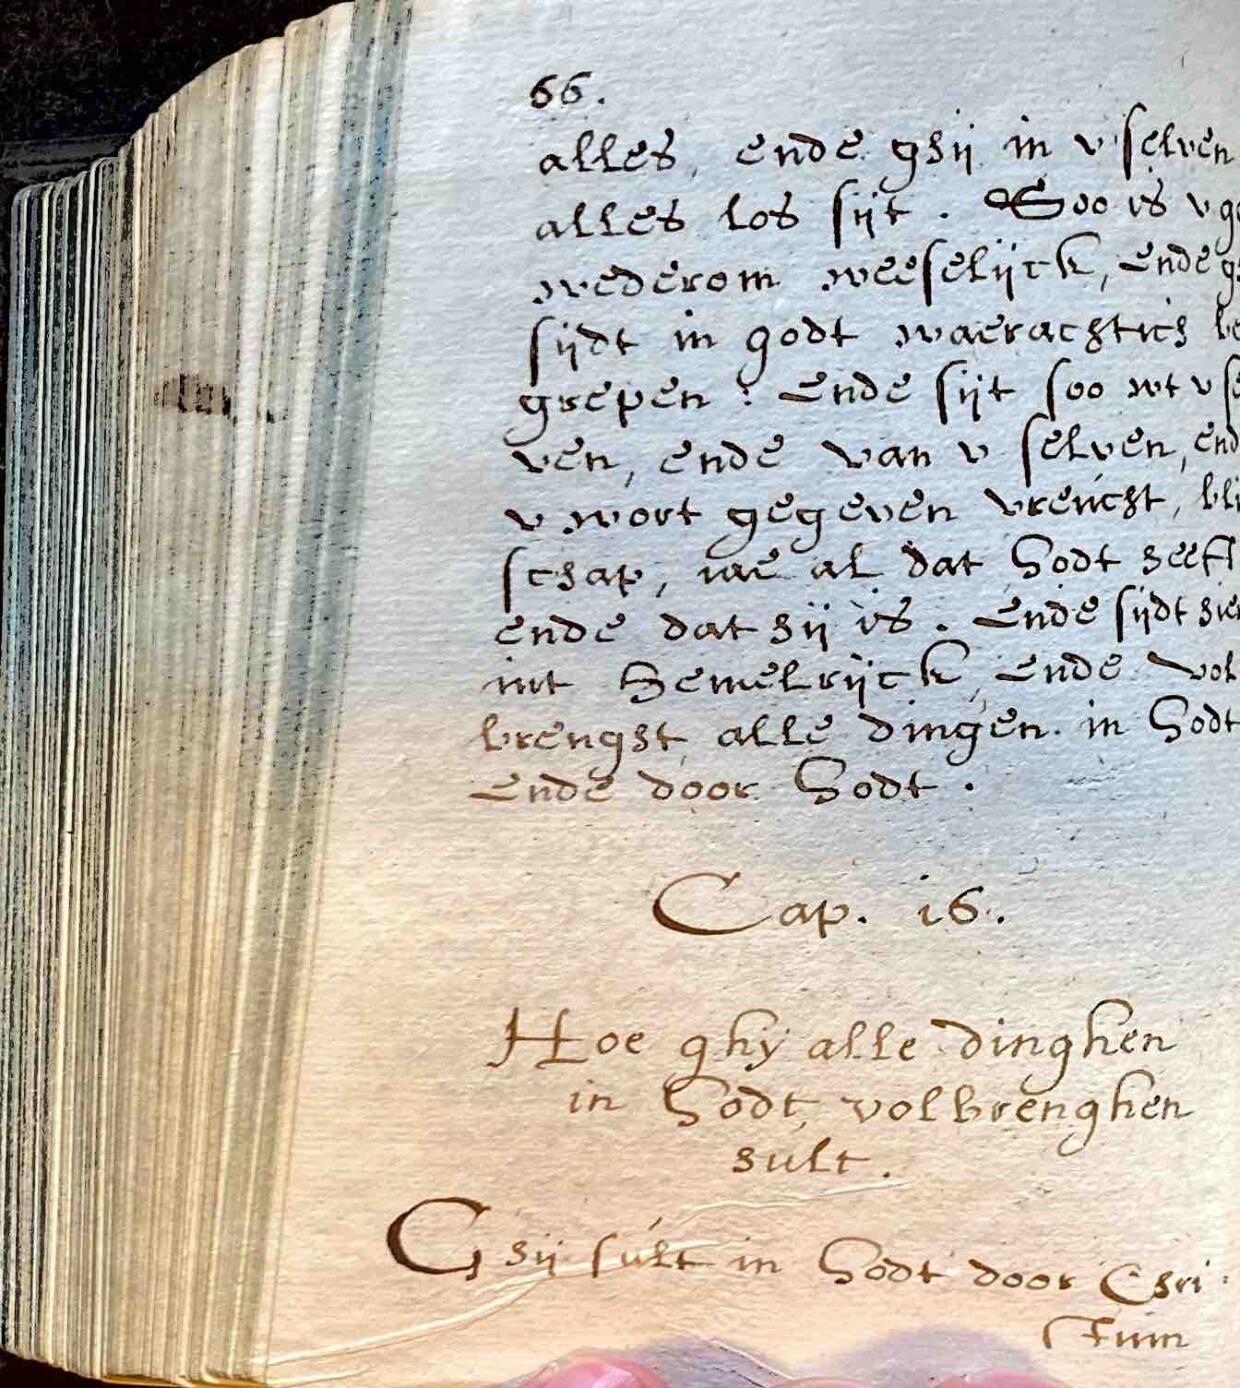 66.
alles, ende ghij in v selven
alles los sijt. Soo is v
wederom weeselijck, ende
sijdt in godt waerachtich be
grepen: Ende sijt soo wt v se
ven, ende van v selven, end
v wort gegeven vreucht, bli
schap, iae al dat Godt heeft
ende dat hij is. Ende sijdt hier
int Hemelrijck, ende vol
brenght alle dingen in Godt
Ende door Godt.
Cap. 16.
Hoe ghy alle dinghen
in Godt volbrenghen
sult.
Ghij sult in Godt door Chri
stum